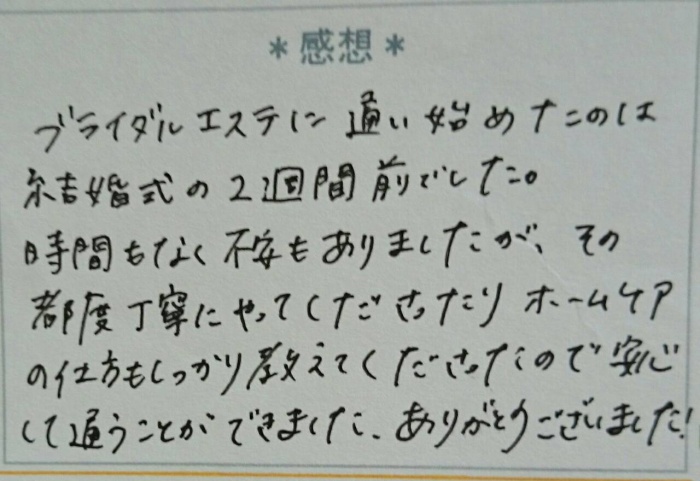 ＊感想＊
ブライダルエステに通い始めたのは
結婚式の2週間前でした。
時間もなく不安もありましたが、その
都度丁寧にやってくださったりホームケア
の仕方もしっかり教えてくださったので安心
して通うことができました、ありがとうございました!